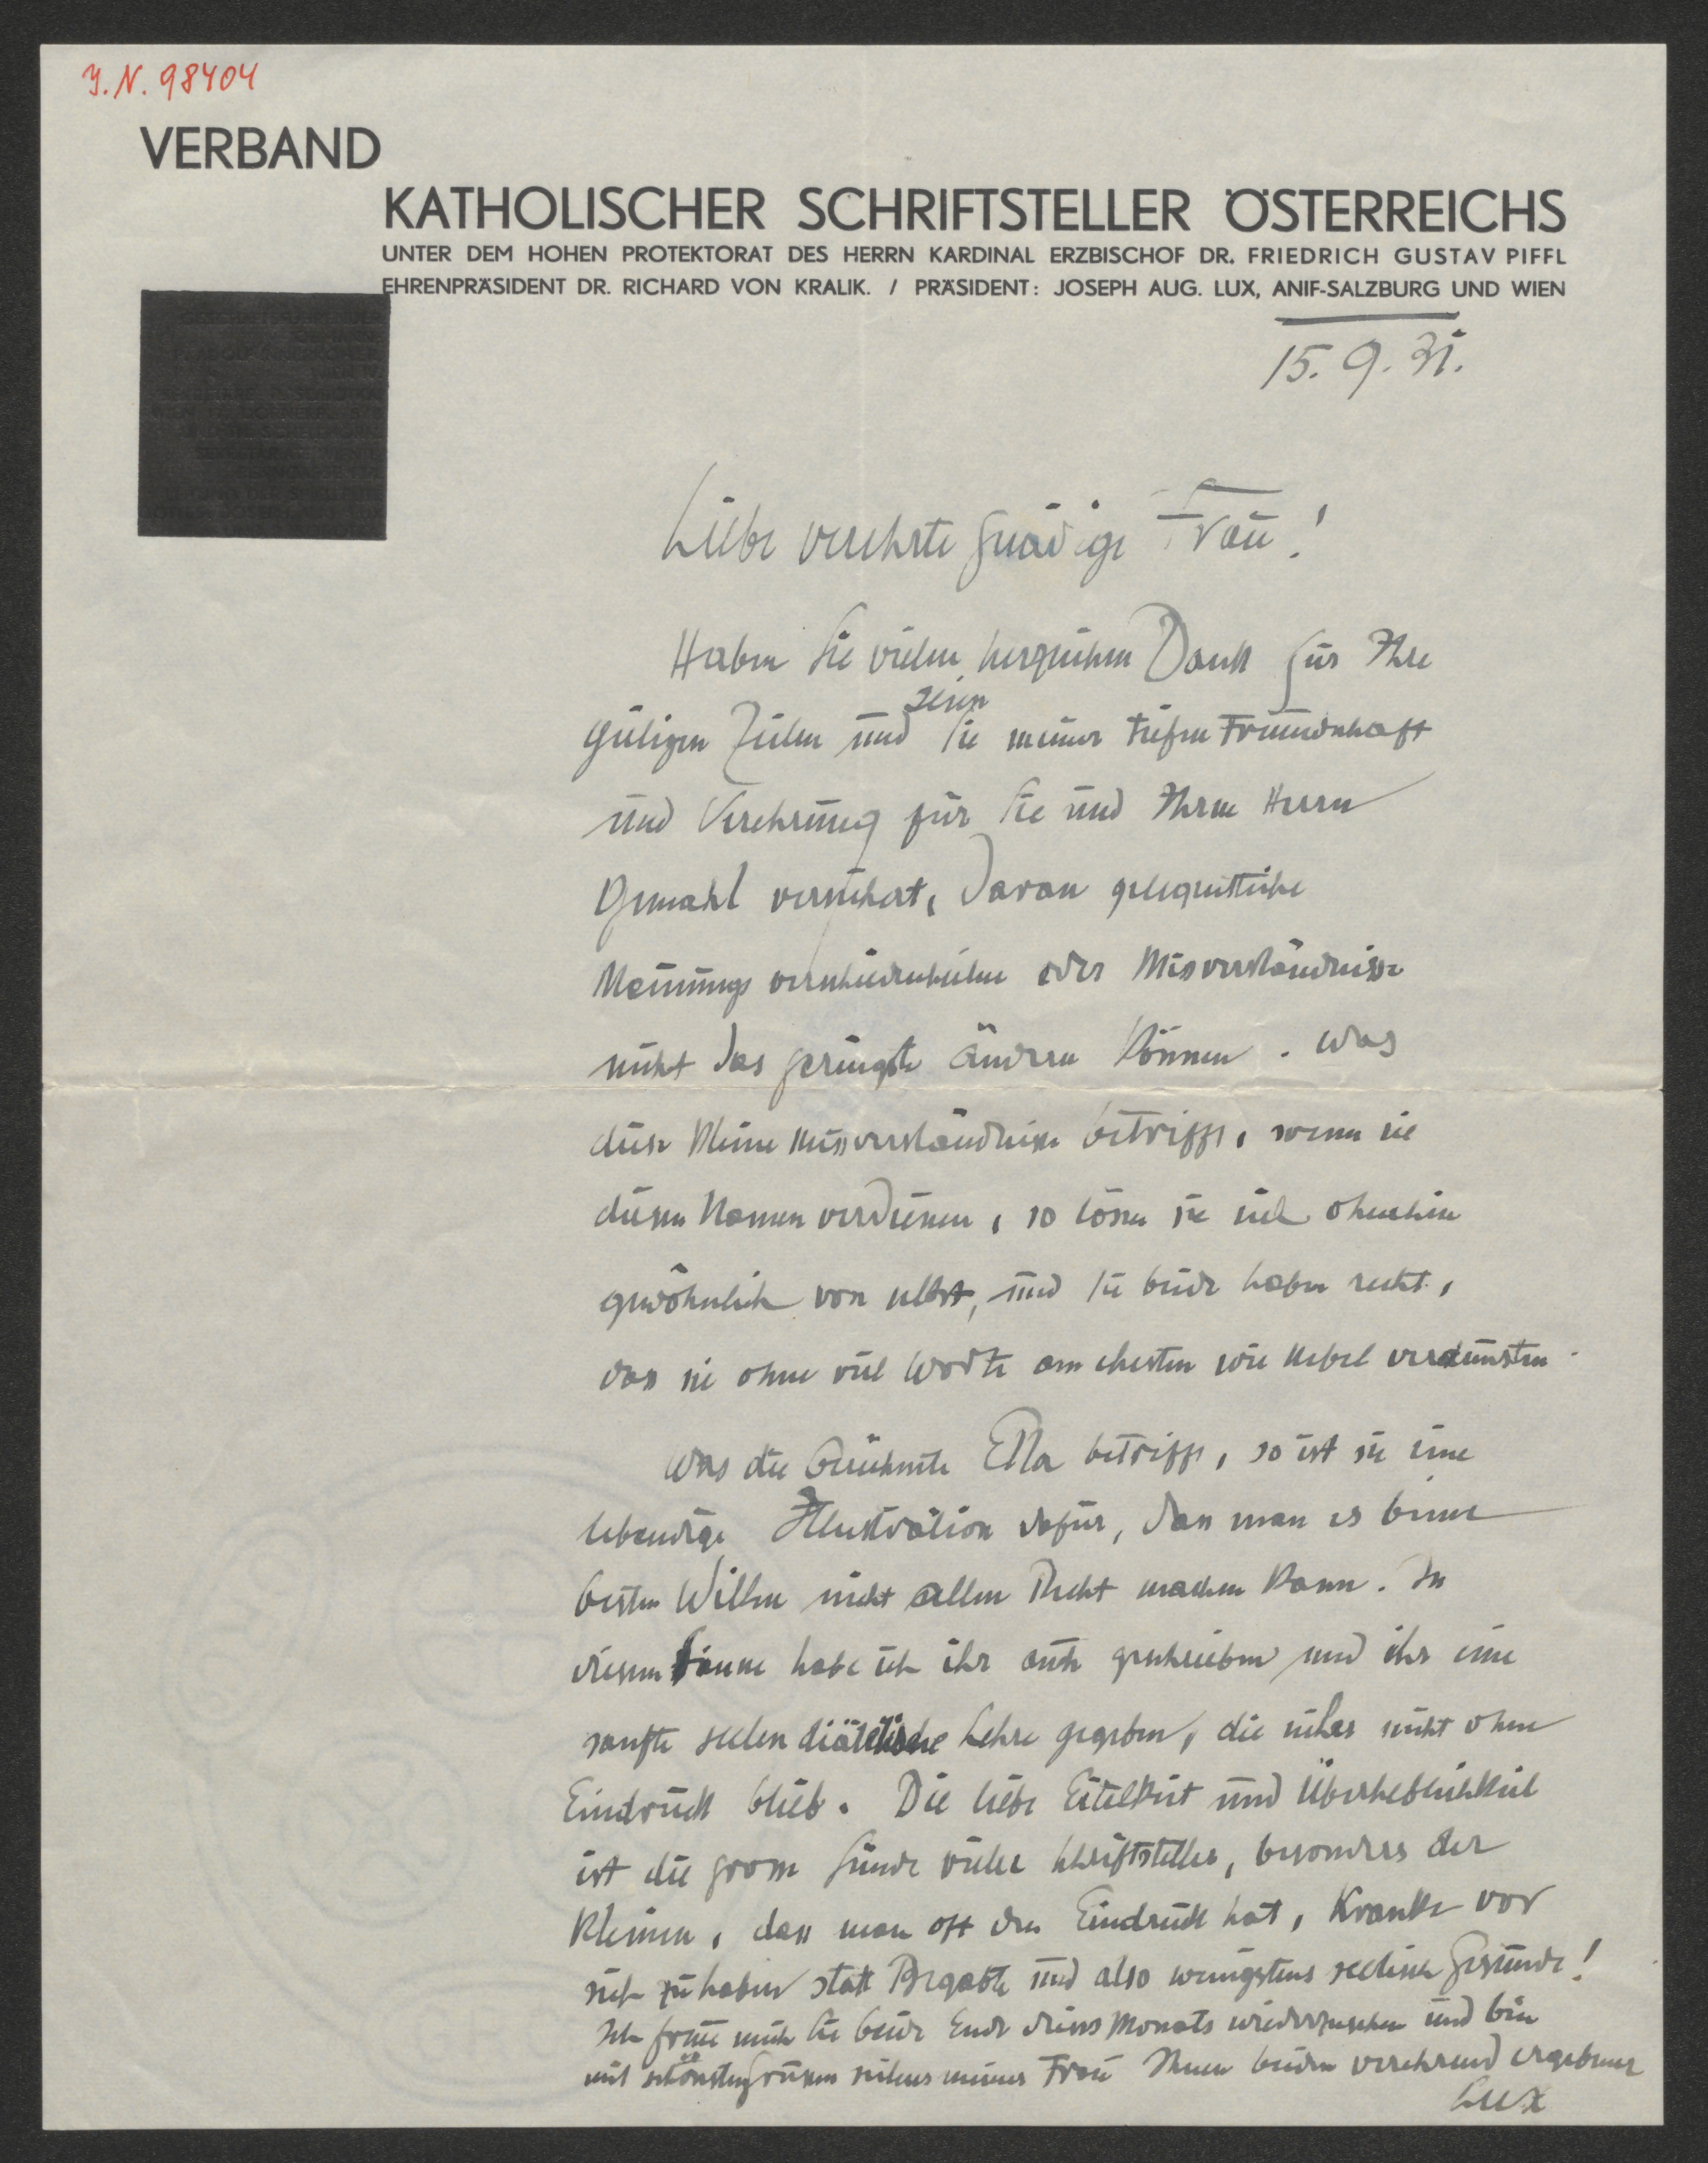 J. N. 98404
VERBAND
KATHOLISCHER SCHRIFTSTELLER ÖSTERREICHS
UNTER DEM HOHEN PROTEKTORAT DES HERRN KARDINAL ERZBISCHOF DR. FRIEDRICH GUSTAV PIFFL
EHRENPRÄSIDENT DR. RICHARD VON KRALIK. / PRÄSIDENT: JOSEPH AUG. LUX, ANIF-SALZBURG UND WIEN
15. 9. 31.
Liebe verehrte gnädige Frau!
Haben Sie vielen herzlichen Dank für Ihre
gütigen Zeilen und seien Sie meiner tiefen Freundschaft
und Verehrung für Sie und Ihren Herrn
Gemahl versichert, daran gelegentliche
Meinungsverschiedenheiten oder Missverständnisse
nicht das geringste ändern können. Was
diese kleinen Missverständnisse betrifft, wenn sie
diesen Namen verdienen, so lösen sie sich ohnehin
gewöhnlich von selbst, und Sie beide haben recht,
dass sie ohne viel Worte am ehesten wie Nebel verdunsten.
Was die berühmte Ella betrifft, so ist sie eine
lebendige Illustration dafür, dass man es beim
besten Willen nicht allen Recht machen kann. In
diesem Sinne habe ich ihr auch geschrieben und ihr eine
sanfte seelendiätetische Lehre gegeben, die sicher nicht ohne
Eindruck blieb. Die liebe Eitelkeit und Überheblichkeit
ist die grosse Sünde vieler Schriftsteller, besonders der
kleinen, dass man oft den Eindruck hat, Kranke vor
sich zu haben statt Begabte und also wenigstens seelisch Gesunde!
Ich freue mich Sie beide Ende dieses Monats wiederzusehen und bin
mit schönsten Grüssen seitens meiner Frau Ihnen beiden verehrend ergebener
Lux